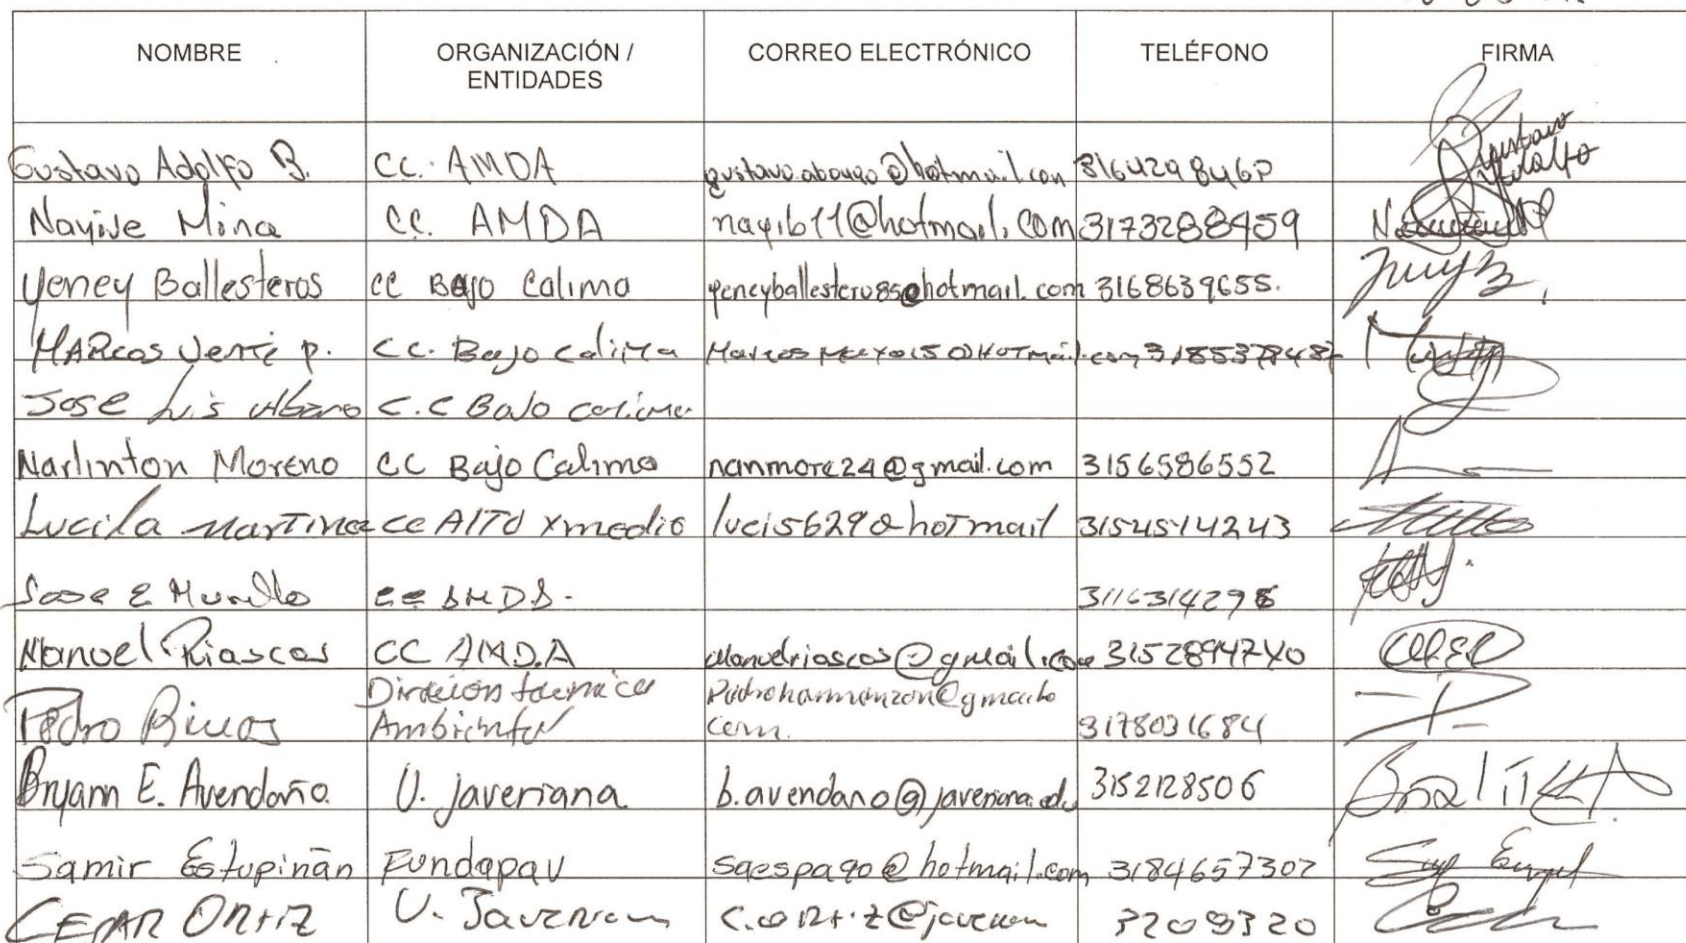 NOMBRE ORGANIZACIÓN / ENTIDADES CORREO ELECTRÓNICO TELÉFONO FIRMA
Gustavo Adolfo B. CC. AMDA @hotmail.com Gustavo Adolfo
Nayive Mina CC. AMDA nayib11@hotmail.com 3173288459
Yeney Ballesteros CC Bajo Calima yeneyballesteros85@hotmail.com 3168639655.
MARcos Vente p. CC. Bajo Calima
Jose Luis C.C Bajo Calima
Narlinton Moreno CC Bajo Calima nanmore24@gmail.com 3156586552
Lucila Martine CC AlTO x medio luci5629@hotmail 3154514243
Jose E Murillo
Manuel Riascos CC AMD.A manuelriascos@gmail.com 3152894740
Pedro Rivas Dirección técnica
Ambiental
com. 3178031684
Bryann E. Avendaño. U. javeriana b.avendano@javeriana.edu 3152128506
Samir Estupiñán Fundapav saespa90@hotmail.com 3184657302
CESAR ORtiZ U. Javeriana 3208320